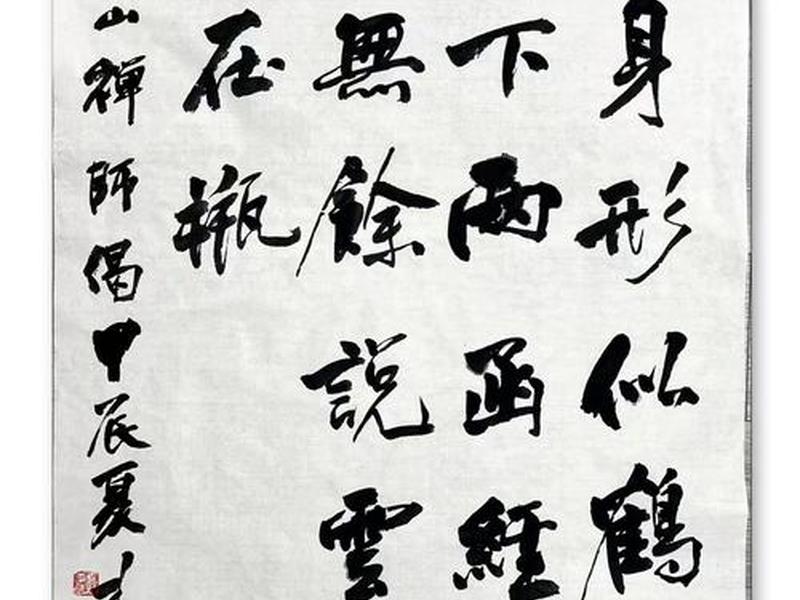 身形似鶴
下兩函經
無餘説雲
在瓶
山禪師偈甲辰夏